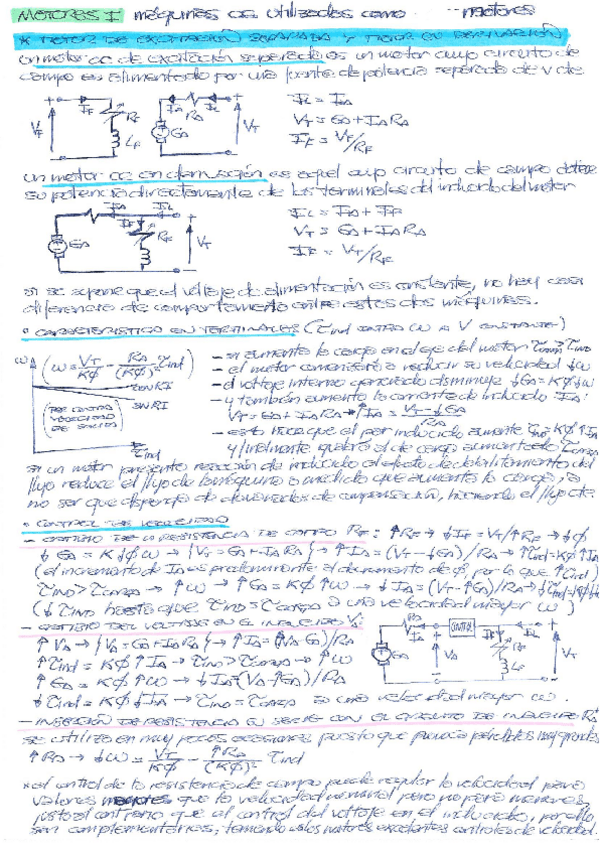 MOTORES I máquinas cc utilizadas como motores
* MOTOR DE EXCITACIÓN SEPARADA Y MOTOR EN DERIVACIÓN
Un motor cc de excitación separada es un motor cuyo circuito de
campo es alimentado por una fuente de potencia separada de V cte.
IF RF LF VF IA RA IL EA VT
IL = IA
VT = EA + IA RA
IF = VF/RF
un motor cc en derivación es aquel cuyo circuito de campo obtiene
su potencia directamente de los terminales del inducido del motor
IA IL IF RF LF EA VT
IL = IA + IF
VT = EA + IA RA
IF = VT/RF
si se supone que el voltaje de alimentación es constante, no hay casi
diferencia de comportamiento entre estas dos máquinas.
• CARACTERÍSTICA EN TERMINALES (τind contra ω a V constante)
ω (ω = VT/Kφ - RA/(Kφ)² τind)
CON RI
SIN RI
(PAR CONTRA VELOCIDAD DE SALIDA)
τind
- si aumenta la carga en el eje del motor τcarga > τind
- el motor comenzará a reducir su velocidad ↓ω
- el voltaje interno generado disminuye ↓EA = Kφ↓ω
- y también aumenta la corriente de inducido IA:
VT = EA + IA RA → ↑IA = (VT - ↓EA)/RA
- esto hace que el par inducido aumente τind = Kφ↑IA
y finalmente igualará al de carga aumentado τcarga
si un motor presenta reacción de inducido el efecto de debilitamiento del
flujo reduce el flujo de la máquina a medida que aumenta la carga, a
no ser que disponga de devanados de compensación, haciendo el flujo cte.
• CONTROL DE VELOCIDAD
- CAMBIO DE LA RESISTENCIA DE CAMPO RF: ↑RF → ↓IF = VT/↑RF → ↓φ
↓EA = K↓φω → (VT = EA + IA RA) → ↑IA = (VT - ↓EA)/RA → ↑τind = Kφ↑IA
(el incremento de IA es predominante al decremento de φ, por lo que ↑τind)
τind > τcarga → ↑ω → ↑EA = Kφ↑ω → ↓IA = (VT - ↑EA)/RA → ↓τind = Kφ↓IA
(↓τind hasta que τind = τcarga a una velocidad mayor ω)
- CAMBIO DEL VOLTAJE EN EL INDUCIDO VA:
↑VA → (VA = EA + IA RA) → ↑IA = (↑VA - EA)/RA
↑τind = Kφ↑IA → τind > τcarga → ↑ω
↑EA = Kφ↑ω → ↓IA = (VA - ↑EA)/RA
↓τind = Kφ↓IA → τind = τcarga a una velocidad mayor ω.
IA RA CONTR. IL IF RF LF EA VA VT
- INSERCIÓN DE RESISTENCIA EN SERIE CON EL CIRCUITO DE INDUCIDO RA
se utiliza en muy pocas ocasiones puesto que provoca pérdidas muy grandes
↑RA → ↓ω = VT/Kφ - ↑RA/(Kφ)² τind
* el control de la resistencia de campo puede regular la velocidad para
valores mayores que la velocidad nominal pero no para menores,
justo al contrario que el control del voltaje en el inducido, por ello
son complementarios, teniendo estos motores excelentes controles de velocidad.